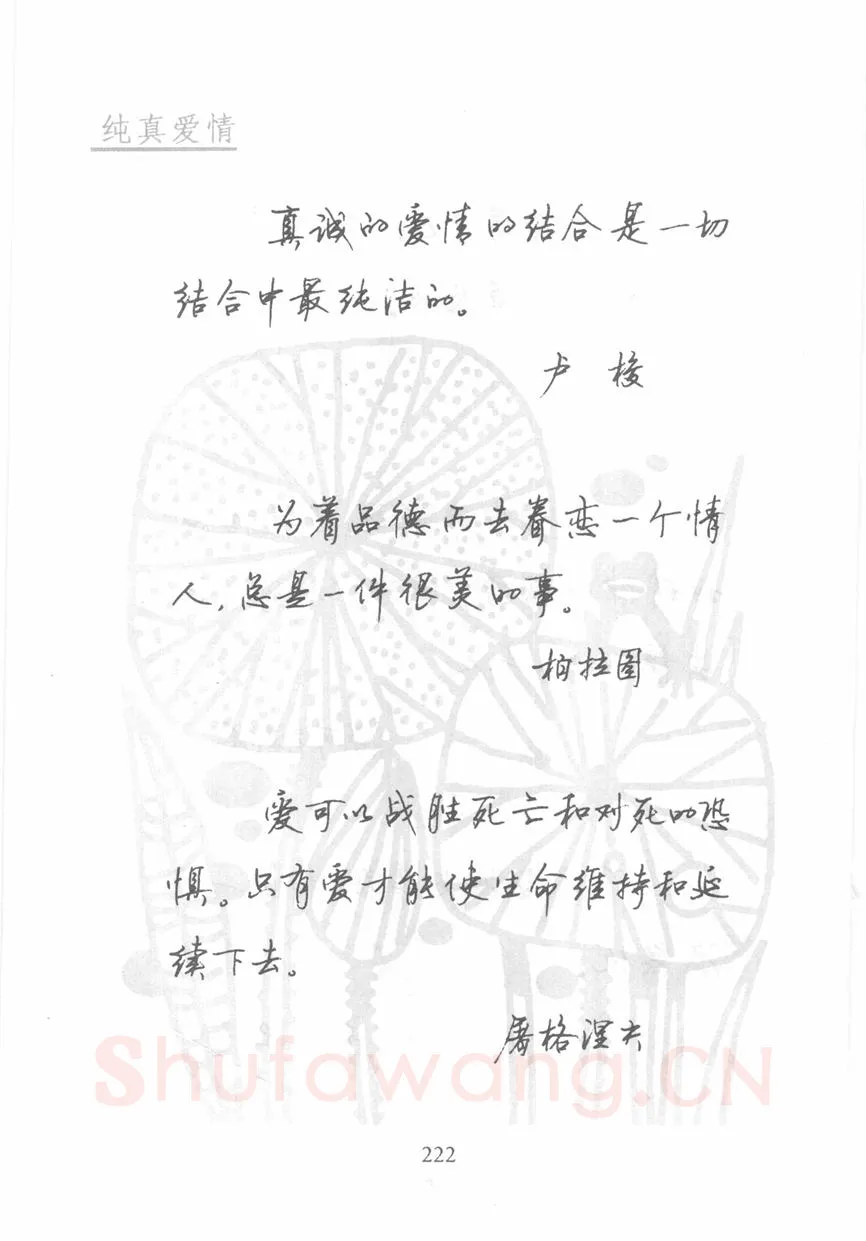 纯真爱情
真诚的爱情的结合是一切
结合中最纯洁的。
卢 梭
为着品德而去眷恋一个情
人,总是一件很美的事。
柏拉图
爱可以战胜死亡和对死的恐
惧。只有爱才能使生命维持和延
续下去。
屠格涅夫
Shufawang.CN
222